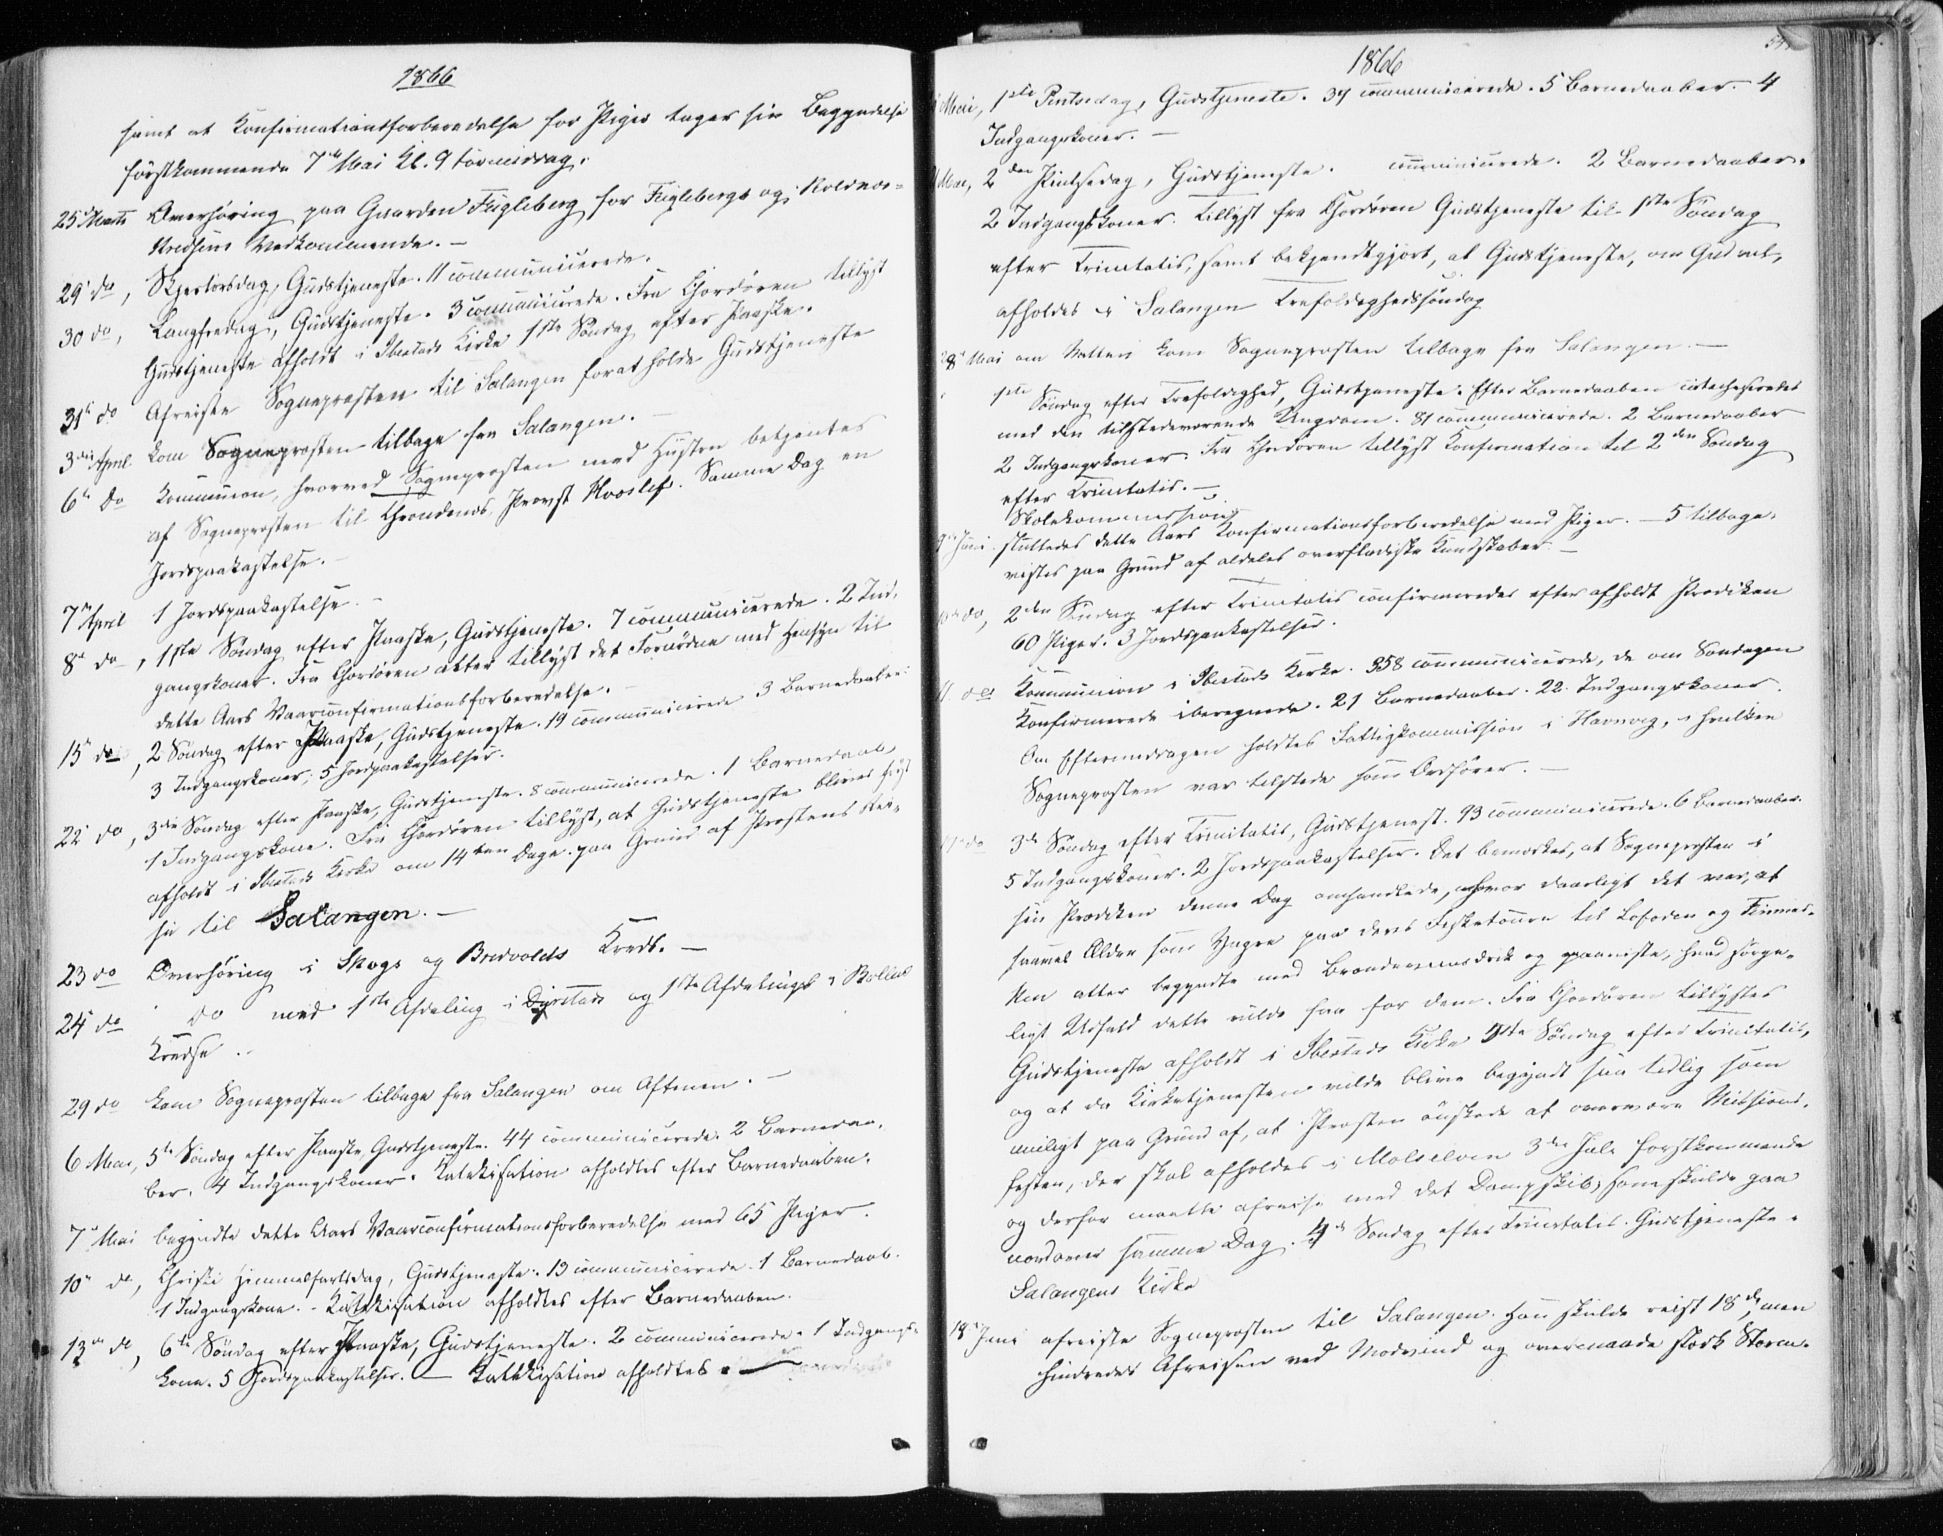 1866
samt at Konfirmationsforberedelse for Piger tager sin Begyndelse
førstkommende 7de Mai Kl. 9 Formiddag.
25 Marts Overhøring paa Gaarden Fugleberg for Fuglebergs og Rolvnæs-
Kredsens Vedkommende. —
29 do, Skjertorsdag, Gudstjeneste. 11 communicerede.
30 do, Langfredag, Gudstjeneste. 3 communicerede. Fra Chordøren tillyst
Gudstjeneste afholdt i Ibestads Kirke 1ste Søndag efter Paaske.
31te do Afreiste Sognepresten til Salangen forat holde Gudstjeneste
3die April kom Sognepresten tilbage fra Salangen. —
6te do Kommunion, hvorved Sognepresten med Hustru betjentes
af Sognepresten til Throndenæs, Provst Kooslef. Samme Dag en
Jordspaakastelse. —
7de April 1 Jordspaakastelse. —
8de do, 1ste Søndag efter Paaske, Gudstjeneste. 7 communicerede. 2 Ind-
gangskoner. Fra Chordøren atter tillyst det Fornødne med Hensyn til
dette Aars Vaarconfirmationsforberedelse. —
15de do, 2 Søndag efter Paaske, Gudstjeneste. 19 communicerede 3 Barnedaaber.
3 Indgangskoner, 5 Jordspaakastelser.
22 do, 3die Søndag efter Paaske, Gudstjeneste. 8 communicerede. 1 Barnedaab,
1 Indgangskone. Fra Chordøren tillyst, at Gudstjeneste bliver først
afholdt i Ibestads Kirke om 14ten Dage paa Grund af Prestens Rei-
se til Salangen. —
23 do Overhøring i Skogs og Bredvolds Kreds. —
24 do do med 1ste Afdeling i Dyrstad og 1ste Afdeling i Bollas
Kredse.
29 do kom Sognepresten tilbage fra Salangen om Aftenen. —
6 Mai, 5te Søndag efter Paaske, Gudstjeneste. 44 communicerede. 2 Barnedaa-
ber. 4 Indgangskoner. Katekisation afholdtes efter Barnedaaben.
7de Mai begyndte dette Aars Vaarconfirmationsforberedelse med 65 Piger.
10de do, Christi Himmelfartsdag, Gudstjeneste. 13 communicerede. 1 Barnedaab.
1 Indgangskone. - Katekisation afholdtes efter Barnedaaben.
13de do, 6te Søndag efter Paaske, Gudstjeneste. 2 communicerede. 1 Indgangs-
kone. 5 Jordspaakastelser. — Katekisation afholdtes.
1866
Mai, 1ste Pintsedag, Gudstjeneste. 37 communicerede. 5 Barnedaaber. 4
Indgangskoner. —
Mai, 2den Pintsedag, Gudstjeneste. communicerede. 2 Barnedaaber.
2 Indgangskoner. Tillyst fra Chordøren Gudstjeneste til 1ste Søndag
efter Trinitatis, samt bekjendtgjort, at Gudstjeneste, om Gud vil,
afholdes i Salangen Trefoldighedssøndag
28 Mai om Natten kom Sognepresten tilbage fra Salangen. —
1ste Søndag efter Trefoldighed, Gudstjeneste. Efter Barnedaaben catechiseredes
med den tilstedeværende Ungdom. 81 communicerede. 2 Barnedaaber
2 Indgangskoner. Fra Chordøren tillyst Konfirmation til 2den Søndag
efter Trinitatis. —
Skolekommission
9de Juni sluttedes dette Aars Konfirmationsforberedelse med Piger. — 5 tilbage-
vistes paa Grund af aldeles overfladiske Kundskaber. —
do, 2den Søndag efter Trinitatis confirmeredes efter afholdt Prædiken
60 Piger. 3 Jordspaakastelser.
11 do Kommunion i Ibestads Kirke. 358 communicerede, de om Søndagen
Konfirmerede iberegnede. 21 Barnedaaber. 22 Indgangskoner.
Om Eftermiddagen holdtes Fattigkommission i Havnvig, i hvilken
Sognepresten var tilstede som Ordfører. —
do 3de Søndag efter Trinitatis, Gudstjenest. 93 communicerede. 6 Barnedaaber.
5 Indgangskoner. 2 Jordspaakastelser. Det bemærkes, at Sognepresten i
sin Prædiken denne Dag omhandlede, hvor daarligt det var, at
saavel Ældre som Yngre paa deres Fisketoure til Lofoden og Finmar-
ken atter begyndte med Brændevinsdrik og paaviste, hvad sørge-
ligt Udfald dette vilde faa for dem. Fra Chordøren tillystes
Gudstjeneste afholdt i Ibestads Kirke 5te Søndag efter Trinitatis,
og at da Kirketjenesten vilde blive begyndt saa tidlig som
muligt paa Grund af, at Presten ønskede at overvære Missions-
festen, der skal afholdes i Maalselven 3die Juli førstkommende
og derfor maatte afreise med det Dampskib, som skulde gaa
nordover samme Dag. 4de Søndag efter Trinitatis. Gudstjeneste i
Salangens Kirke
18de Juni afreiste Sognepresten til Salangen. Han skulde reist 18de, men
hindredes Afreisen ved Modvind og overmaade stærk Storm.